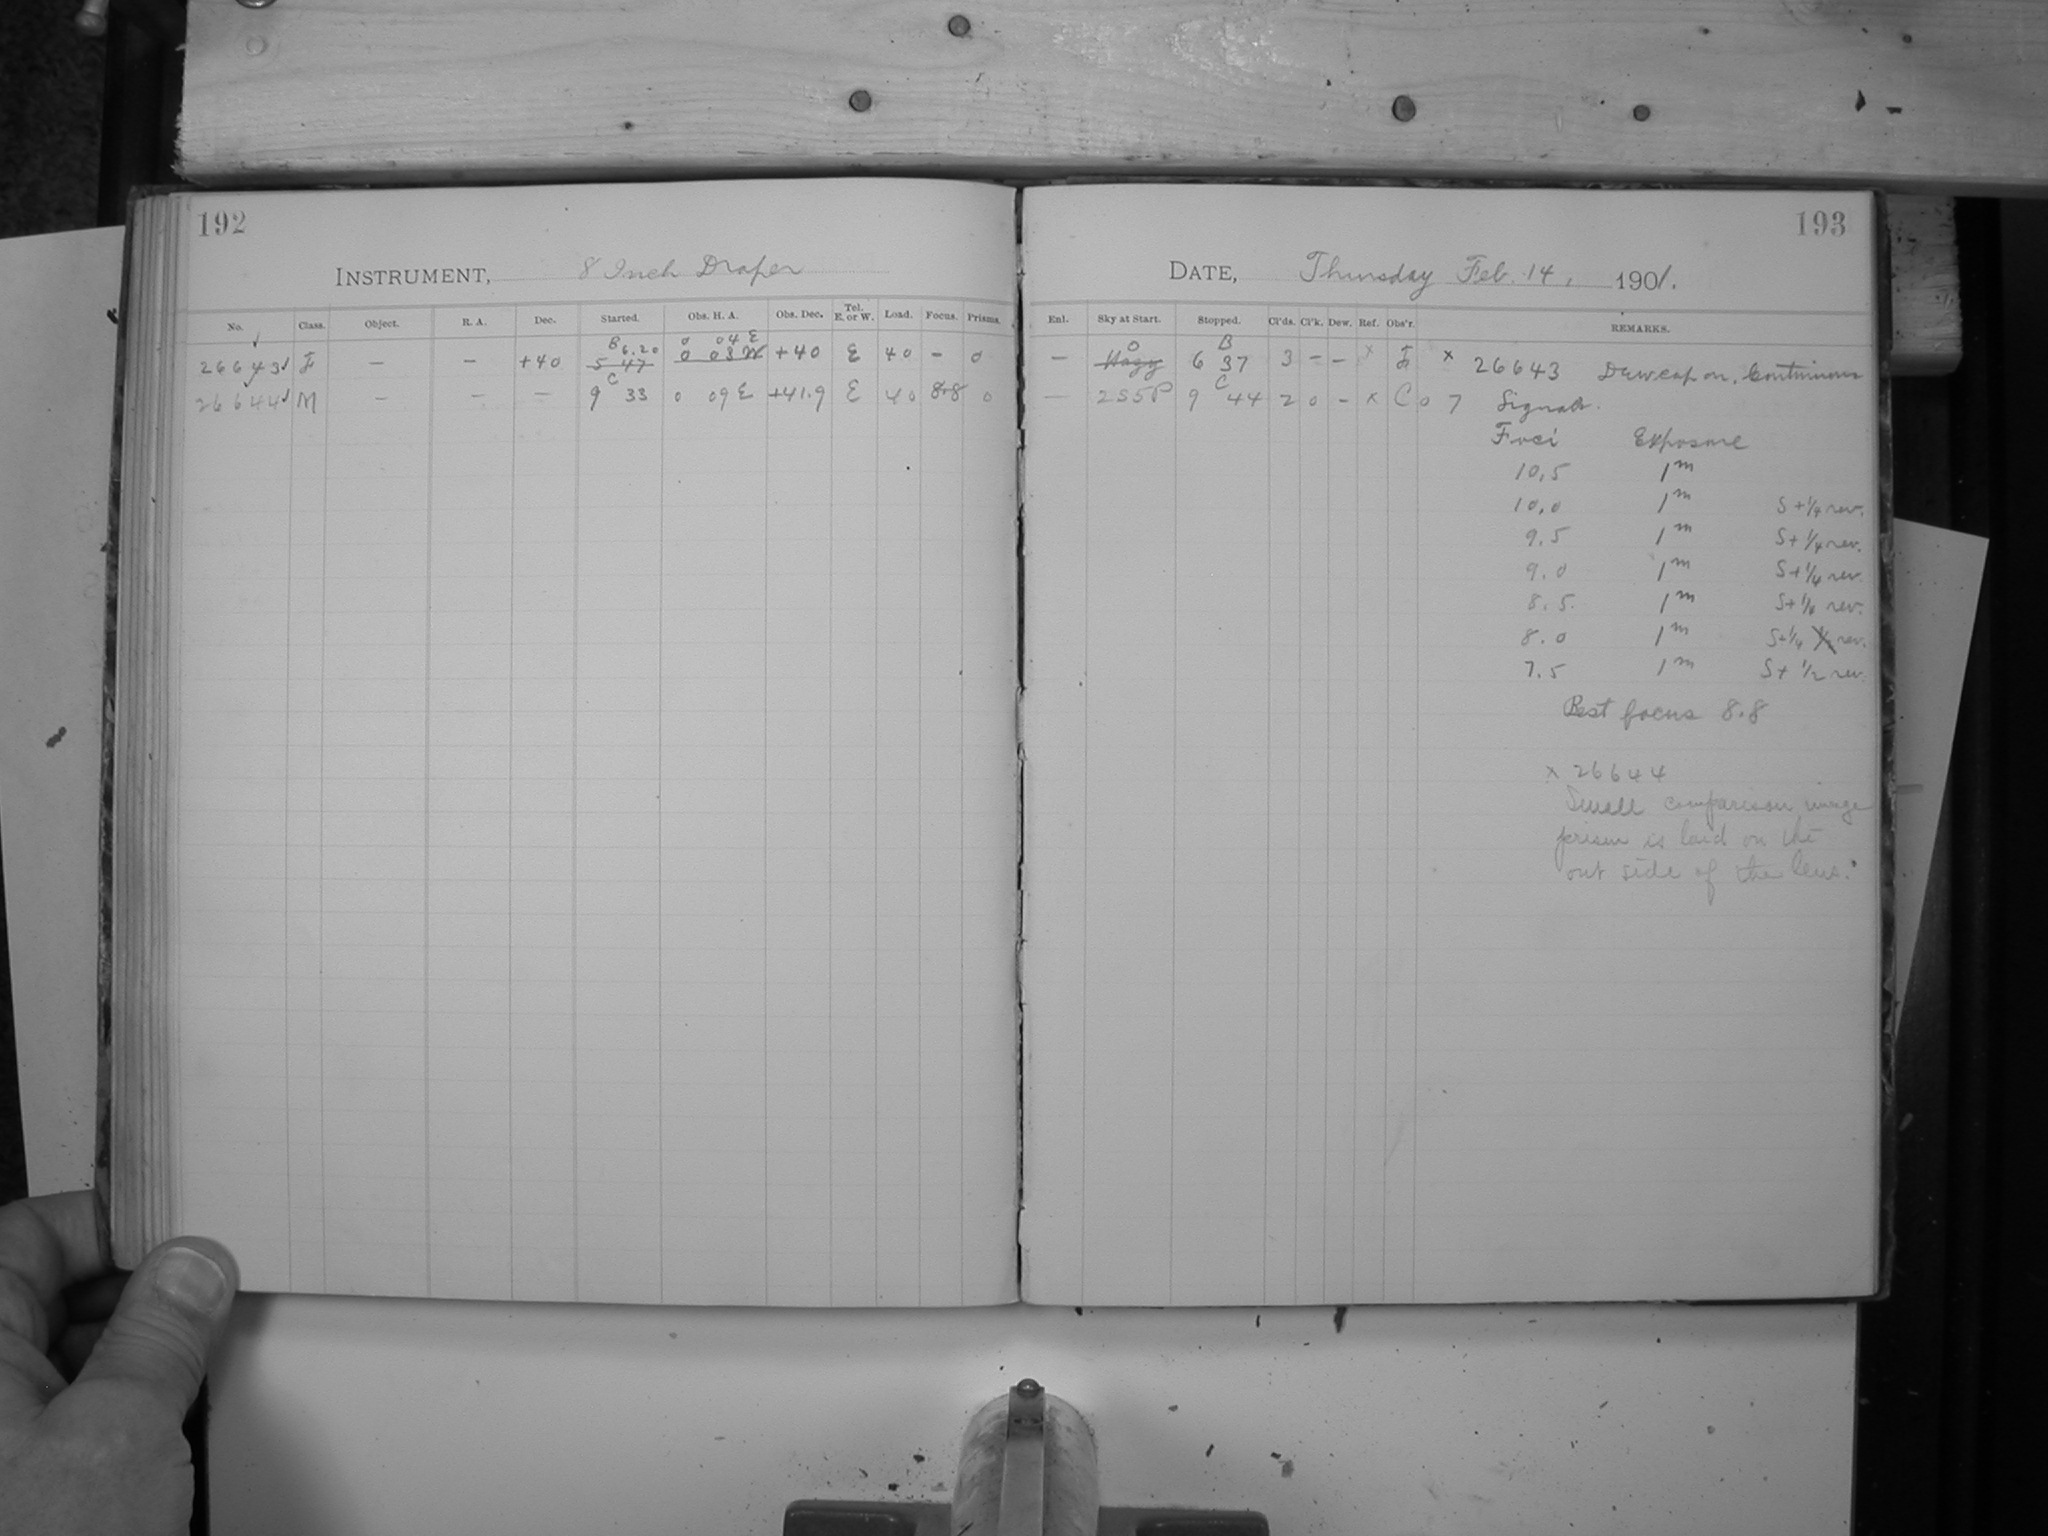 192
193
INSTRUMENT, 8 Inch Draper
DATE, Thursday Feb. 14, 1901.
No. Class. Object. R. A. Dec. Started. Obs. H. A. Obs. Dec. Tel. E. or W. Load. Focus. Prisms.
Enl. Sky at Start. Stopped. Cl'ds. Cl'k. Dew. Ref. Obs'r. REMARKS.
B 6.20 0 04 E
26643 F — — +40 5 47 0 03 W +40 E 40 — 0
— Hazy 0 B 6 37 3 — — x F
x 26643 Dewcap on. Continuous
26644 M — — — C 9 33 0 09 E +41.9 E 40 8.8 0
— 2S5P C 9 44 2 0 — x C 0 7
Signals.
Foci Exposure
10.5 1m
10.0 1m S+1/4 rev.
9.5 1m S+1/4 rev.
9.0 1m S+1/4 rev.
8.5 1m S+1/4 rev.
8.0 1m S+1/4 rev.
7.5 1m S+ 1/2 rev.
Best focus 8.8
x 26644
Small comparison image
prism is laid on the
out side of the lens.